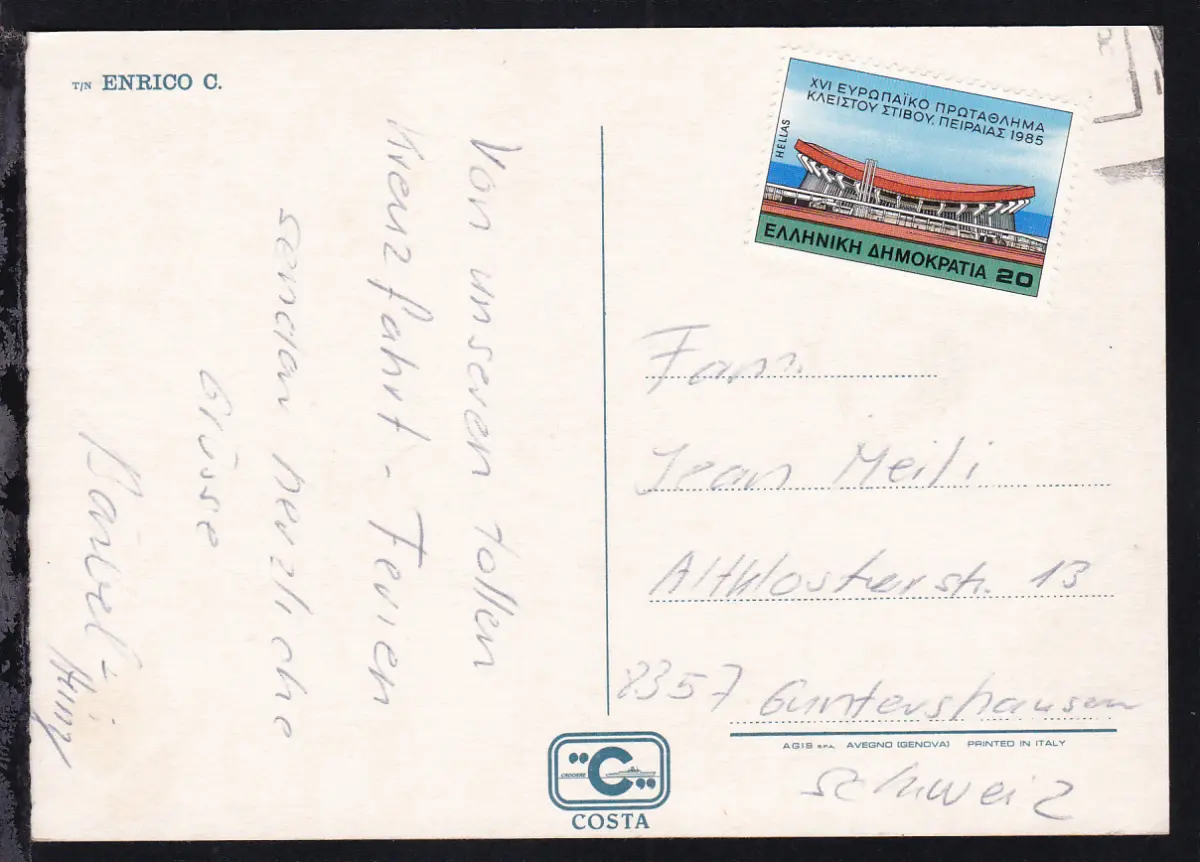 T/N ENRICO C.
Von unseren tollen
Kreuzfahrt - Ferien
senden herzliche
Grüsse
XVI ΕΥΡΩΠΑΪΚΟ ΠΡΩΤΑΘΛΗΜΑ
ΚΛΕΙΣΤΟΥ ΣΤΙΒΟΥ. ΠΕΙΡΑΙΑΣ 1985
HELLAS
ΕΛΛΗΝΙΚΗ ΔΗΜΟΚΡΑΤΙΑ 20
Fam.
Jean Meili
Altklosterstr. 13
8357 Guntershausen
AGIS S.P.A. AVEGNO (GENOVA) PRINTED IN ITALY
Schweiz
CROCIERE "C"
COSTA